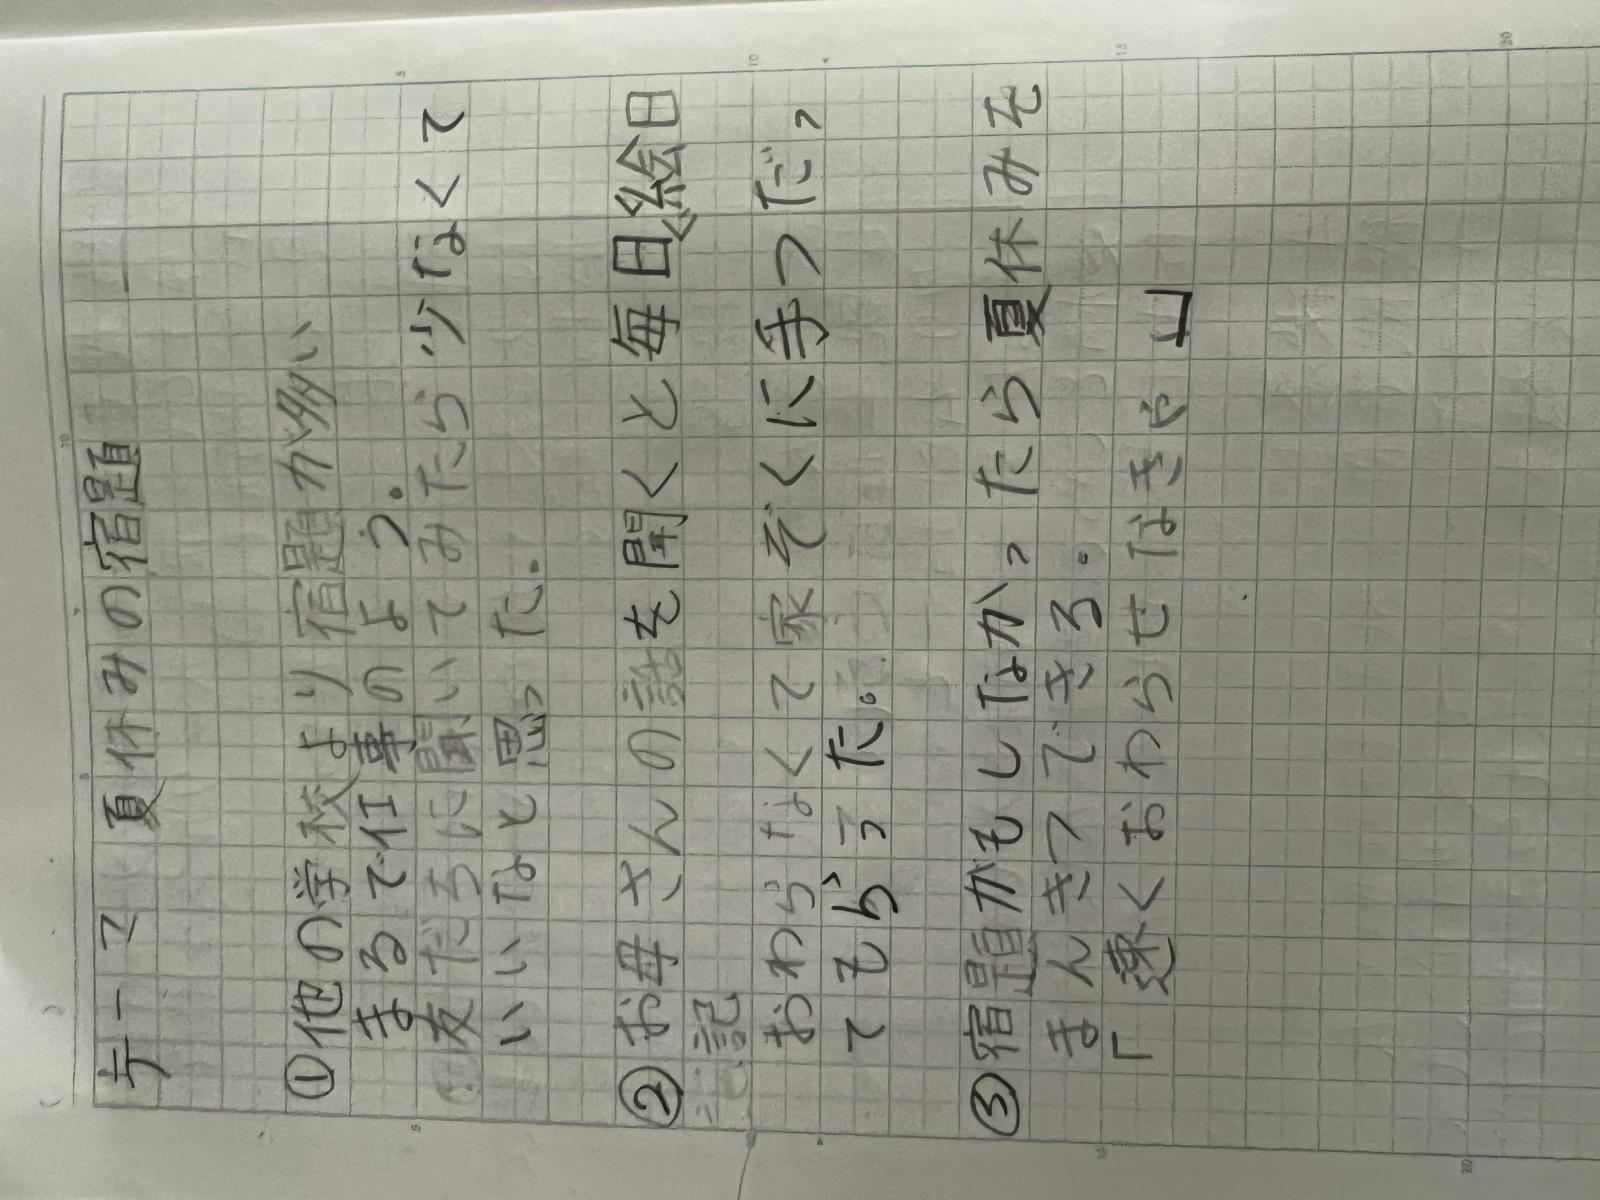 テーマ 夏休みの宿題
①他の学校より宿題が多い
まるで仕事のよう。
友だちに聞いてみたら少なくて
いいなと思った。
②お母さんの話を聞くと毎日絵日
記
おわらなくて家ぞくに手つだっ
てもらった。
③宿題がもしなかったら夏休みを
まんきつできる。
「速くおわらせなきゃ」